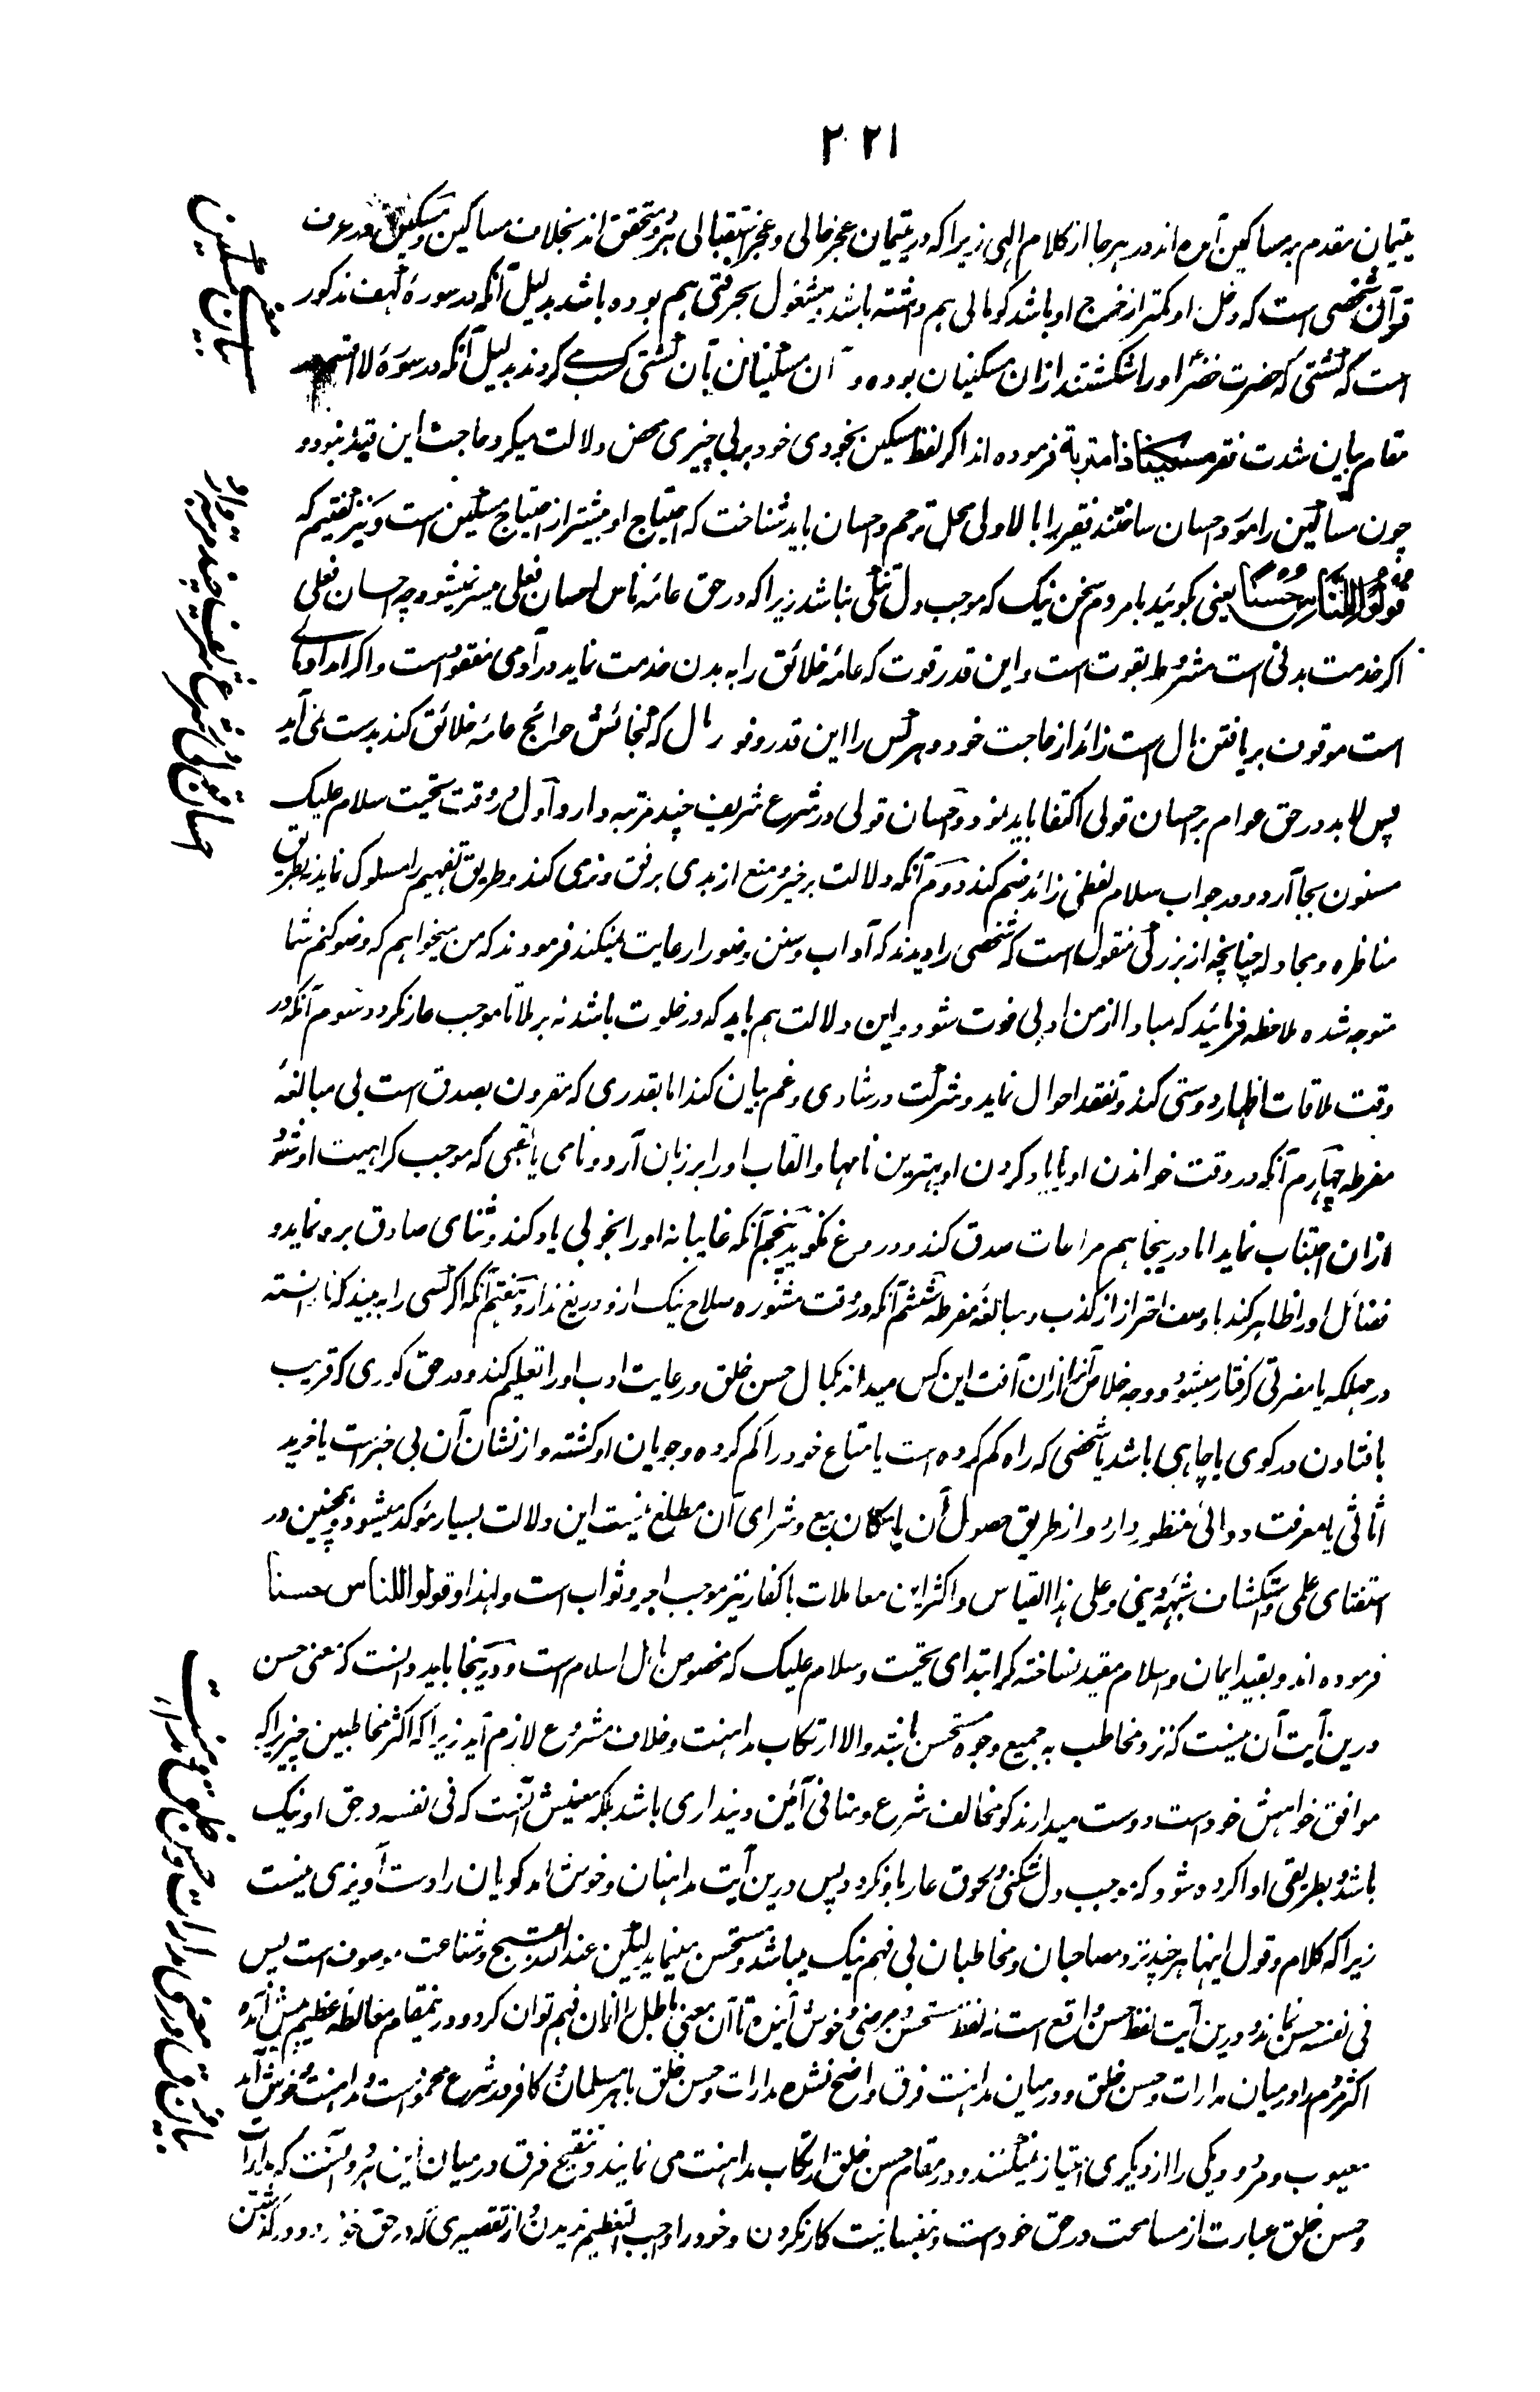 ۲۲۱
یتیمان مقدم بر مساکین آمده اند در هر جا از کلام الهی زیرا که در یتیمان عجز حالی و عجز استقبالی هر دو متحقق اند بخلاف مساکین و مسکین در عرف
قرآن شخصی است که دخل او کمتر از خرج او باشد گو مالی هم داشته باشد و مشغول بحرفتی هم بوده باشد بدلیل آنکه در سورهٔ کهف مذکور
است که کشتی که حضرت خضرؑ او را شکستند ازان مسکینان بوده و آن مسکینان بآن کشتی کسب می کردند بدلیل آنکه در سورهٔ لا اقسم در
مقام بیان شدت فقر مسکینا ذا متربة فرموده اند اگر لفظ مسکین بخودی خود بر بی چیزی محض دلالت میکرد حاجت این قید نبود و
چون مساکین را مورد احسان ساختند فقیر را بالاولی محل ترحم و احسان باید شناخت که احتیاج او بیشتر از احتیاج مسکین است و نیز گفتیم که
قُولُوا لِلنَّاسِ حُسْنًا یعنی بگوئید با مردم سخن نیک که موجب دل تنگی نباشد زیرا که در حق عامهٔ ناس احسان فعلی میسر نمیشود چه احسان فعلی
اگر خدمت بدنی است مشروط بقوت است و این قدر قوت که عامهٔ خلائق را به بدن خدمت نماید در آدمی مفقود است و اگر امداد مالی
است موقوف بر یافتن مال است زائد از حاجت خود و هر کس را این قدر وفور مال که گنجائش حوائج عامهٔ خلائق کند بدست نمی آید
پس لابد در حق عوام بر احسان قولی اکتفا باید نمود و احسان قولی در شرع شریف چند مرتبه دارد اول در وقت تحیت سلام علیک
مسنون بجا آرد و در جواب سلام لفظی زائد ضم کند دوم آنکه دلالت بر خیر و منع از بدی برفق و نرمی کند و طریق تفهیم را مسلوک نماید نه طریق
مناظره و مجادله چنانچه از بزرگی منقول است که شخصی را دیدند که آداب و سنن وضو را رعایت نمیکند فرمودند که من میخواهم که وضو کنم شما
متوجه شده ملاحظه فرمائید که مبادا از من ادبی فوت شود و این دلالت هم باید که در خلوت باشد نه برملا تا موجب عار نگردد سوم آنکه در
وقت ملاقات اظهار دوستی کند و تفقد احوال نماید و شرکت در شادی و غم بیان کند اما بقدری که مقرون بصدق است بی مبالغهٔ
مفرطه چهارم آنکه در وقت خواندن او یا یاد کردن او بهترین نامها و القاب او را بر زبان آرد و نامی یا لقبی که موجب کراهیت او شود
ازان اجتناب نماید اما درینجا هم مراعات صدق کند و دروغ نگوید پنجم آنکه غایبانه او را بخوبی یاد کند و ثنای صادق برو نماید و
فضائل او را ظاهر کند با وصف احتراز از کذب و مبالغهٔ مفرطه ششم آنکه در وقت مشوره صلاح نیک ازو دریغ ندارد هفتم آنکه اگر کسی را به بیند که نادانسته
در مهلکه یا مضرتی گرفتار میشود و وجه خلاص او را ازان آفت این کس میداند بکمال حسن خلق و رعایت ادب او را تعلیم کند و در حق کوری که قریب
بافتادن در گوی یا چاهی باشد یا شخصی که راه گم کرده است یا متاع خود را گم کرده و جویان او گشته و از نشان آن بی خبر است یا خرید
اثاثی یا معرفت دوائی منظور دارد و از طریق حصول آن یا مکان بیع و شرای آن مطلع نیست این دلالت بسیار مؤکد میشود و همچنین در
استفتای علمی و استکشاف شبههٔ دینی و علی هذا القیاس و اکثر این معاملات با کفار نیز موجب اجر و ثواب است و لهذا و قولوا للناس حسنا
فرموده اند و بقید ایمان و اسلام مقید نساخته مگر ابتدای تحیت و سلام علیک که مخصوص باهل اسلام است و درینجا باید دانست که معنی حسن
درین آیت آن نیست که نزد مخاطب به جمیع وجوه مستحسن باشد والا ارتکاب مداهنت و خلاف مشروع لازم آید زیرا که اکثر مخاطبین چیزی را که
موافق خواهش خود است دوست میدارند گو مخالف شرع و منافی آئین دینداری باشد بلکه معنیش آنست که فی نفسه در حق او نیک
باشد و بطریقی ادا کرده شود که موجب دل شکنی و لحوق عار باو نگردد پس درین آیت مداهنان و خوش آمد گویان را دست آویزی نیست
زیرا که کلام و قول اینها هر چند نزد مصاحبان و مخاطبان بی فهم نیک میباشد و مستحسن مینماید لیکن عند الله بقبح و شناعت موصوف است پس
فی نفسه حسن نماند و درین آیت لفظ حسن واقع است نه لفظ مستحسن و مرضی و خوش آینده تا آن معنی باطل را ازان فهم توان کرد و درینمقام مغالطهٔ عظیم پیش آمده
اکثر مردم را در میان مدارات و حسن خلق و درمیان مداهنت فرق واضح نشده مدارات و حسن خلق با هر مسلمان و کافر در شرع محمود است و مداهنت و خوش آمد
معیوب و مردود یکی را از دیگری امتیاز نمیکنند و در مقام حسن خلق ارتکاب مداهنت می نمایند و تنقیح فرق درمیان این هر دو آنست که مدارات
و حسن خلق عبارت از مسامحت در حق خود است و نفسانیت کار نکردن و خود را واجب التعظیم ندیدن و از تقصیری که در حق خود رود در گذشتن
بیان معنی مسکین
احسان قولی در شرع شریف چند مرتبه دارد
بیان فرق در معنی مدارات و حسن خلق و مداهنت